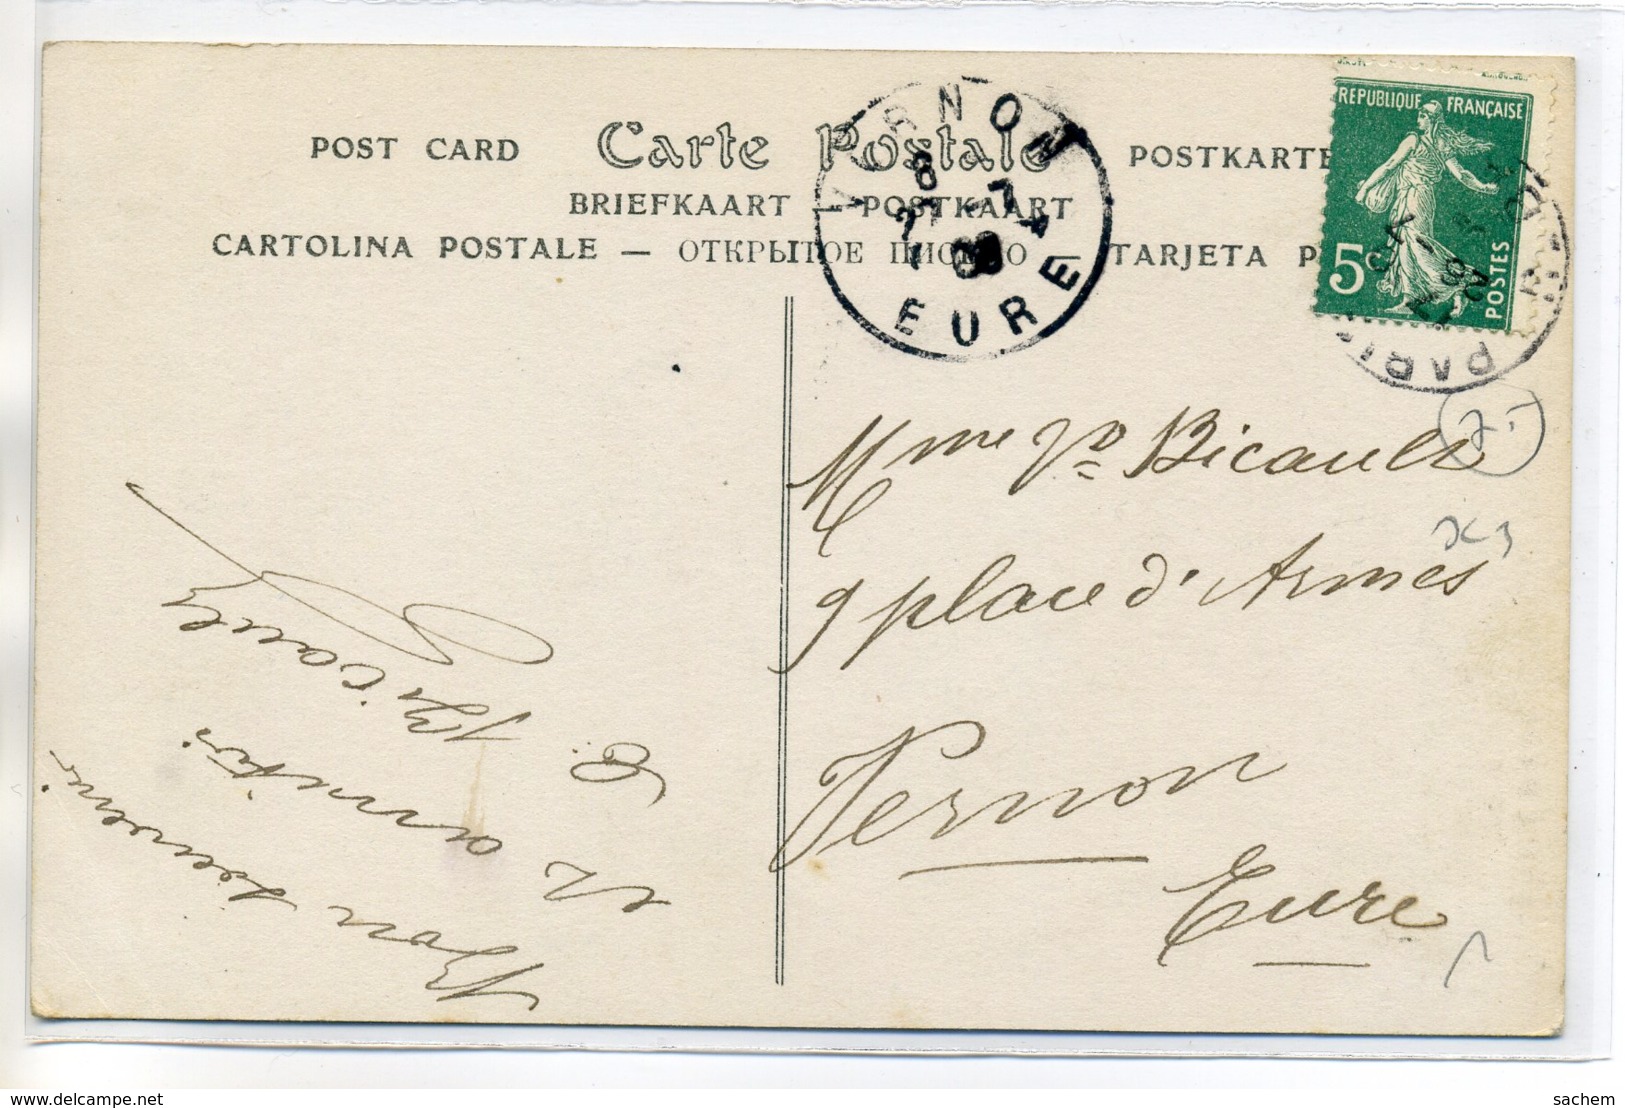 POST CARD Carte Postale POSTKARTE
BRIEFKAART — POSTKAART
CARTOLINA POSTALE — ОТКРЫТОЕ ПИСЬМО — TARJETA P
VERNON
EURE
REPUBLIQUE FRANÇAISE
5c
POSTES
PARIS
Mme Vve Bicault
9 place d'Armes
Vernon
Eure
Bon souvenir
et amitiés
E. Bicault
x3
www.delcampe.net
sachem